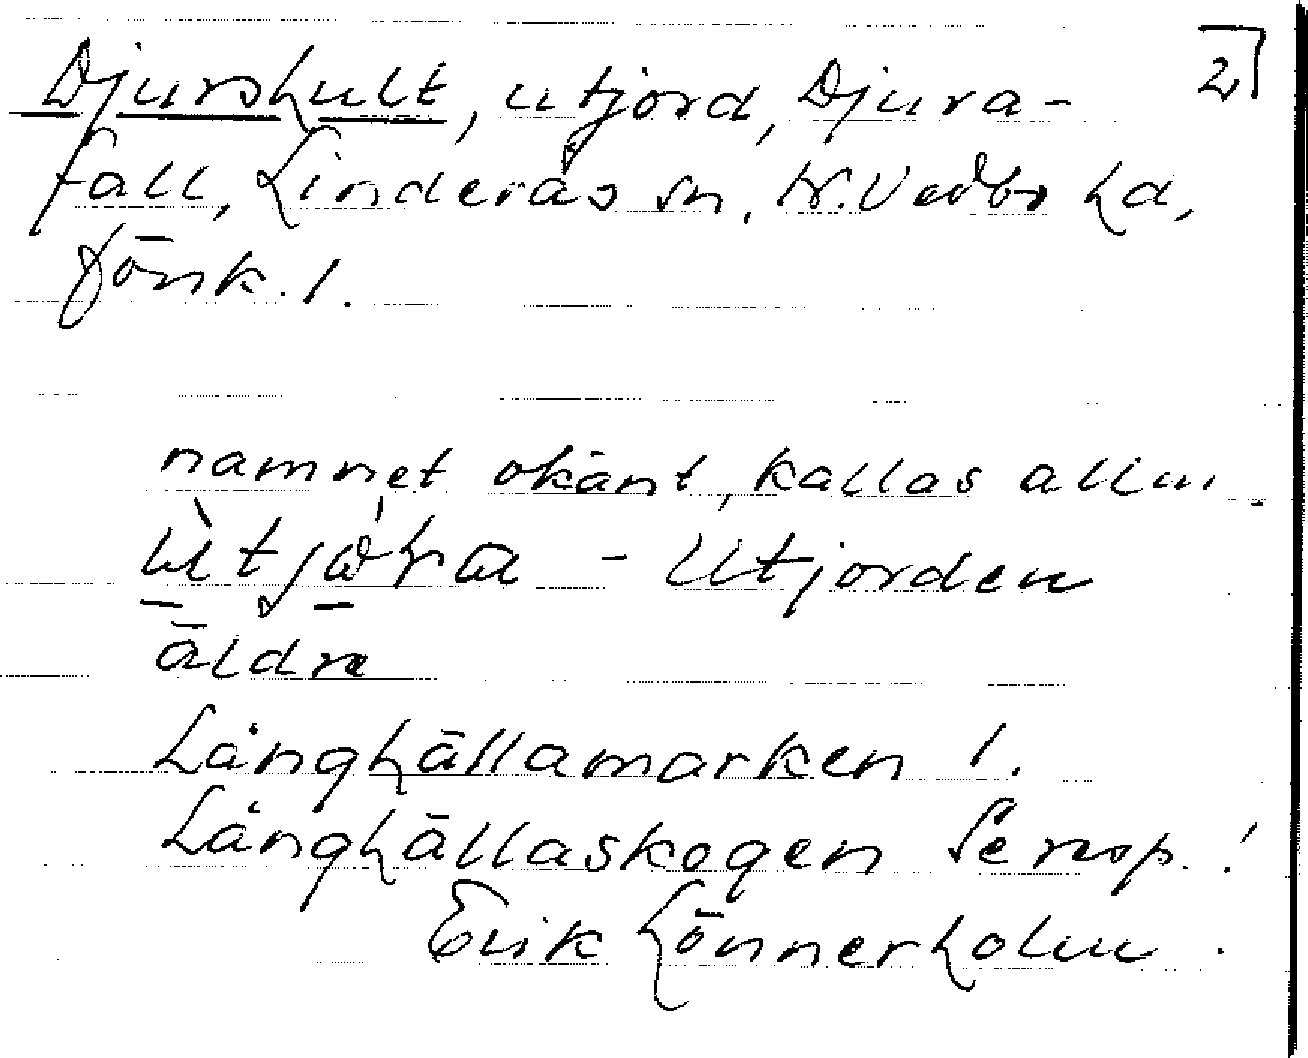 2
Djurshult, utjord, Djura-
fall, Linderås sn, N. Vedbo hd,
Jönk. l.
namnet okänt, kallas allm.
ùtjòḷa - Utjorden
äldre
Långhällamarken l.
Långhällaskogen Se resp. !
Erik Lönnerholm.